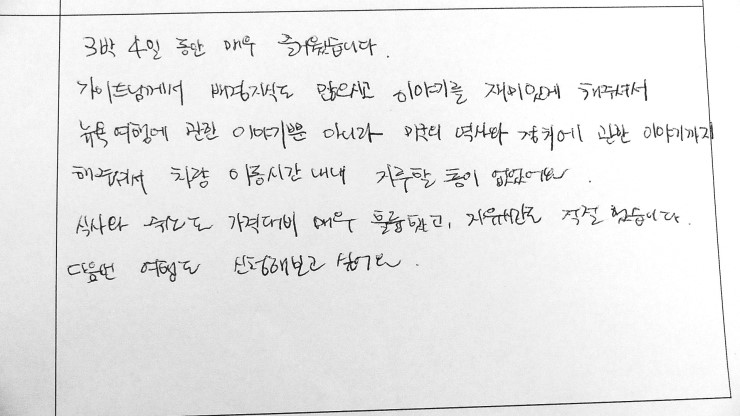 3박 4일 동안 매우 즐거웠습니다.
가이드님께서 배경지식도 많으시고 이야기를 재미있게 해주셔서
뉴욕여행에 관한 이야기뿐 아니라 미국의 역사와 정치에 관한 이야기까지
해주셔서 차량 이동시간 내내 지루할 틈이 없었어요.
식사와 숙소도 가격대비 매우 훌륭했고, 자유시간도 적절했습니다.
다음번 여행도 신청해보고 싶어요.